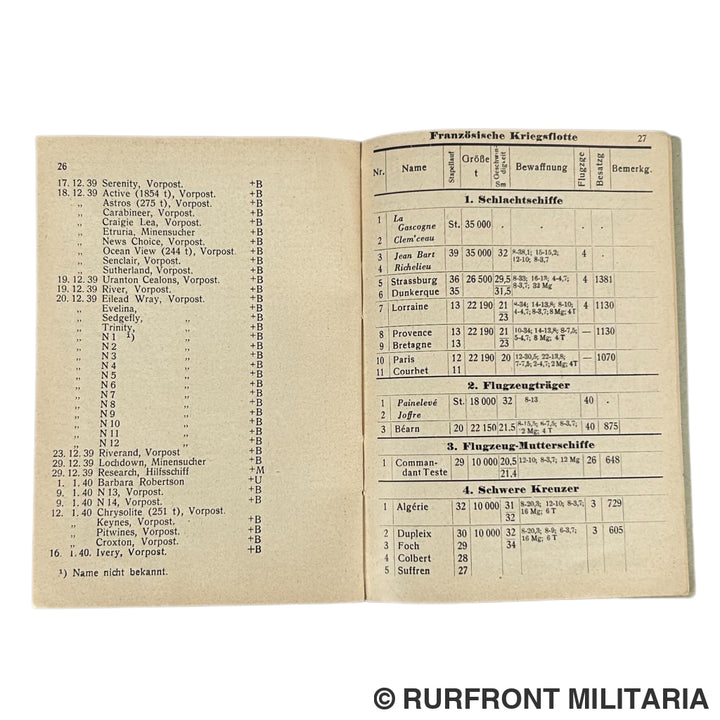 26
17. 12. 39 Serenity, Vorpost. +B
18. 12. 39 Active (1854 t), Vorpost. +B
„ Astros (275 t), Vorpost. +B
„ Carabineer, Vorpost. +B
„ Craigie Lea, Vorpost. +B
„ Etruria, Minensucher +B
„ News Choice, Vorpost. +B
„ Ocean View (244 t), Vorpost. +B
„ Senclair, Vorpost. +B
„ Sutherland, Vorpost. +B
19. 12. 39 Uranton Cealons, Vorpost. +B
19. 12. 39 River, Vorpost. +B
20. 12. 39 Eilead Wray, Vorpost. +B
„ Evelina, „ +B
„ Sedgefly, „ +B
„ Trinity, „ +B
„ N 1 ¹) „ +B
„ N 2 „ +B
„ N 3 „ +B
„ N 4 „ +B
„ N 5 „ +B
„ N 6 „ +B
„ N 7 „ +B
„ N 8 „ +B
„ N 9 „ +B
„ N 10 „ +B
„ N 11 „ +B
„ N 12 „ +B
23. 12. 39 Riverand, Vorpost +B
29. 12. 39 Lochdown, Minensucher +B
29. 12. 39 Research, Hilfsschiff +M
1. 1. 40 Barbara Robertson +U
9. 1. 40 N 13, Vorpost. +B
9. 1. 40 N 14, Vorpost. +B
12. 1. 40 Chrysolite (251 t), Vorpost.
„ Keynes, Vorpost. +B
„ Pitwines, Vorpost. +B
„ Croxton, Vorpost. +B
16. 1. 40. Ivery, Vorpost. +B
¹) Name nicht bekannt.
Französische Kriegsflotte 27
Nr. Name Stapellauf Größe t Geschwindigkeit Sm Bewaffnung Flugzge Besatzg Bemerkg.
1. Schlachtschiffe
1 La Gascogne St. 35 000
2 Clem'ceau
3 Jean Bart 39 35 000 32 8-38,1; 15-15,2; 12-10; 8-3,7 4
4 Richelieu
5 Strassburg 36 26 500 29,5 8-33; 16-13; 4-4,7; 8-3,7; 32 Mg 4 1381
6 Dunkerque 35 31,5
7 Lorraine 13 22 190 21 23 8-34; 14-13,8; 8-10; 4-4,7; 8-3,7; 8 Mg; 4 T 4 1130
8 Provence 13 22 190 21 10-34; 14-13,8; 8-7,5; 5-4,7; 8 Mg; 4 T — 1130
9 Bretagne 13 23
10 Paris 12 22 190 20 12-30,5; 22-13,8; 7-7,5; 2-4,7; 2 Mg; 4 T — 1070
11 Courbet 11
2. Flugzeugträger
1 Painelevé St. 18 000 32 8-13 40 -
2 Joffre
3 Béarn 20 22 150 21.5 8-15,5; 8-7,5; 8-3,7; 2 Mg; 4 T 40 875
3. Flugzeug-Mutterschiffe
1 Comman- 29 10 000 20,5 12-10; 8-3,7; 12 Mg 26 648
dant Teste 21,4
4. Schwere Kreuzer
1 Algérie 32 10 000 31 32 8-20,3; 12-10; 8-3,7; 16 Mg; 6 T 3 729
2 Dupleix 30 10 000 32 8-20,3; 8-9; 6-3,7; 16 Mg; 6 T 3 605
3 Foch 29 34
4 Colbert 28
5 Suffren 27
© RURFRONT MILITARIA